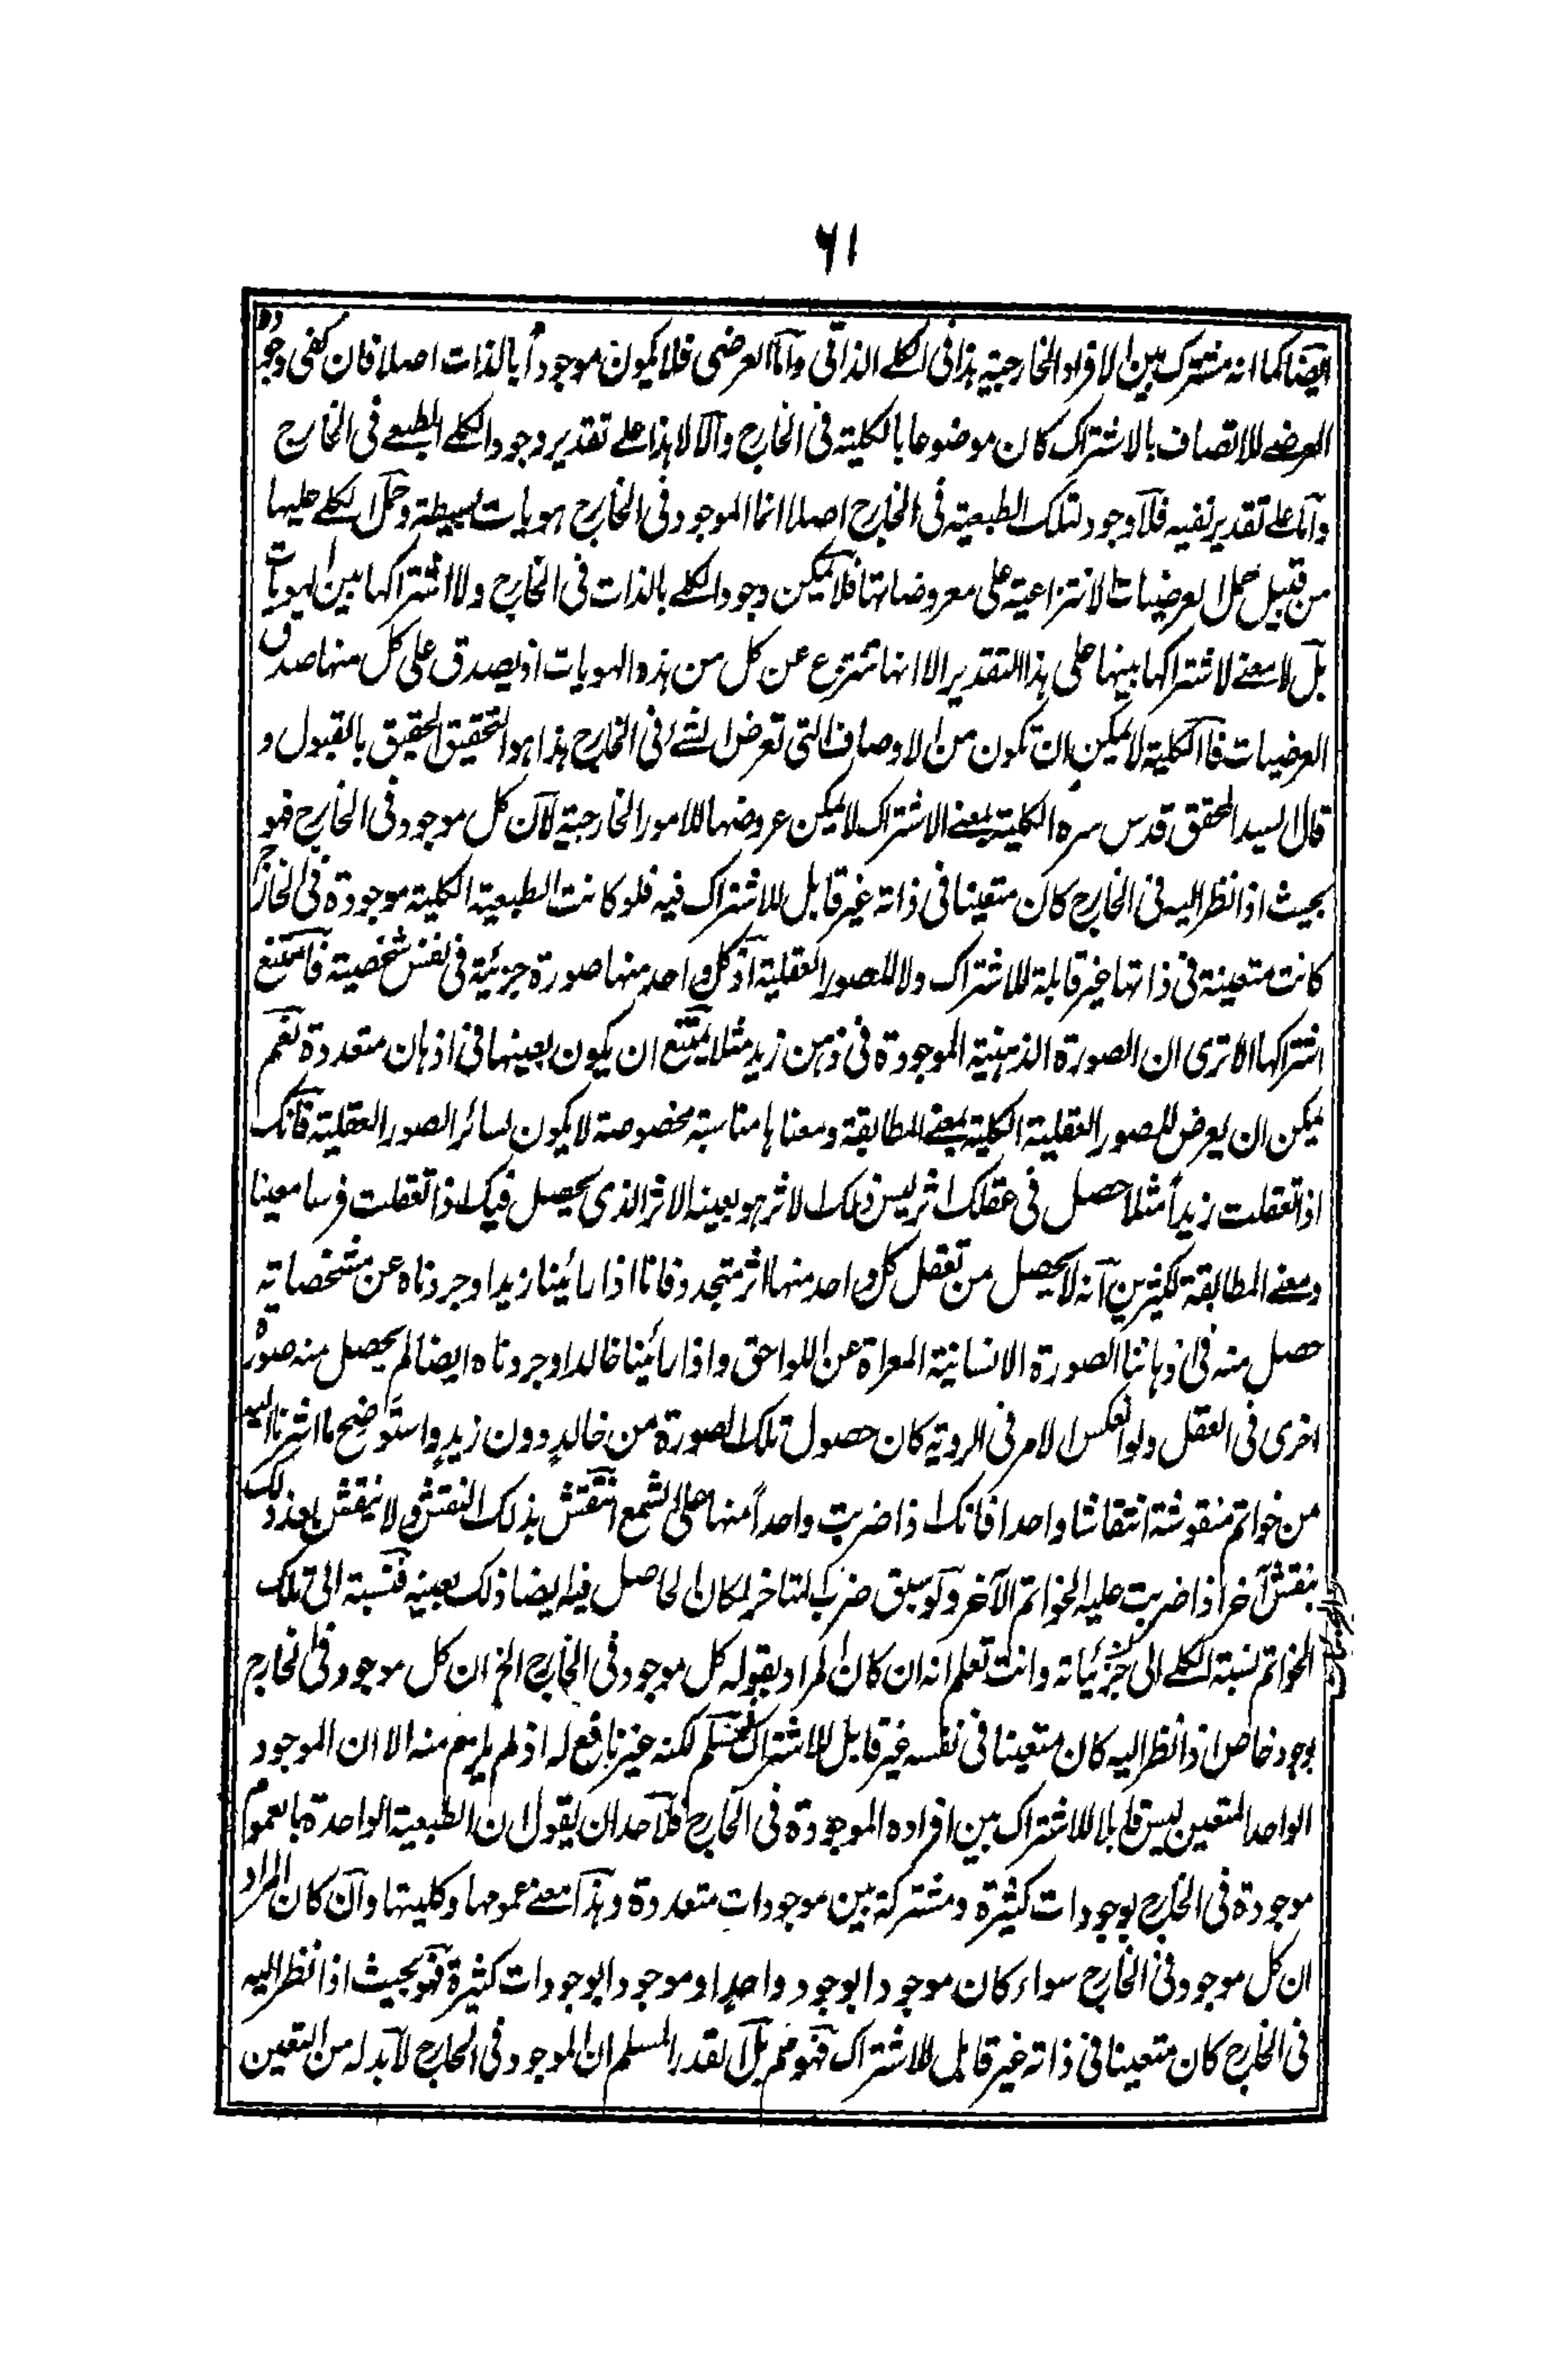 ٦١
ايضا كما انه مشترك بين الافراد الخارجية هذا فى الكلے الذاتى واما العرضى فلا يكون موجودا بالذات اصلا فان كفى وجود
العرضے للاتصاف بالاشتراك كان موضوعا بالكلية فى الخارج والا لا هذا علے تقدير وجود الكلے الطبعے فى الخارج
واما علے تقدير نفيه فلا وجود لتلك الطبيعة فى الخارج اصلا انما الموجود فى الخارج هويات بسيطة وحمل الكلے عليها
من قبيل حمل العرضيات الانتزاعية على معروضاتها فلا يمكن وجود الكلے بالذات فى الخارج ولا اشتراكها بين الهويات
بل لا معنے لاشتراكها بينها على هذا التقدير الا انها تنتزع عن كل من هذه الهويات او يصدق على كل منها صدق
العرضيات فالكلية لا يمكن ان تكون من الاوصاف التى تعرض الشئ فى الخارج هذا هو التحقيق الحقيق بالقبول و
قال السيد المحقق قدس سره الكلية بمعنے الاشتراك لا يمكن عروضها للامور الخارجية لان كل موجود فى الخارج فهو
بحيث اذا نظر اليه فى الخارج كان متعينا فى ذاته غير قابل للاشتراك فيه فلو كانت الطبيعة الكلية موجودة فى الخارج
كانت متعينة فى ذاتها غير قابلة للاشتراك ولا للصور العقلية اذ كل واحد منها صورة جزئية فى نفس شخصية فامتنع
اشتراكها الا ترى ان الصورة الذهنية الموجودة فى ذهن زيد مثلا يمتنع ان يكون بعينها فى اذهان متعددة نعم
يمكن ان يعرض للصور العقلية الكلية بمعنے المطابقة ومعناها مناسبة مخصوصة لا يكون لسائر الصور العقلية فانك
اذا تعقلت زيدا مثلا حصل فى عقلك اثر ليس ذلك الاثر هو بعينه الاثر الذى يحصل فيك اذا تعقلت فرسا معينا
ومعنے المطابقة لكثيرين انه لا يحصل من تعقل كل واحد منها اثر متجدد فانا اذا رائينا زيدا وجردناه عن مشخصاته
حصل منه فى اذهاننا الصورة الانسانية المعراة عن اللواحق واذا رائينا خالدا وجردناه ايضا لم يحصل منه صورة
اخرى فى العقل ولو انعكس الامر فى الروية كان حصول تلك الصورة من خالد دون زيد واستوضح ما اشرنا اليه
من خواتم منقوشة انتقاشا واحدا فانك اذا ضربت واحدا منها على الشمع انتقش بذلك النقش ولا ينتقش بعد ذلك
بنقش آخر اذا ضربت عليه الخواتم الآخر ولو سبق ضرب المتاخر لكان الحاصل فيه ايضا ذلك بعينه فنسبته الى تلك
الخواتم نسبة الكلے الى جزئياته وانت تعلم انه ان كان المراد بقوله كل موجود فى الخارج الخ ان كل موجود فى الخارج
بوجود خاص اذا نظر اليه كان متعينا فى نفسه غير قابل للاشتراك فمسلم لكنه غير نافع له اذ لم يلزم منه الا ان الموجود
الواحد المتعين ليس قابلا للاشتراك بين افراده الموجودة فى الخارج فلاحد ان يقول ان الطبيعة الواحدة بالعموم
موجودة فى الخارج بوجودات كثيرة ومشتركة بين موجودات متعددة وهذا معنے عمومها وكليتها وان كان المراد
ان كل موجود فى الخارج سواء كان موجودا بوجود واحد او موجودا بوجودات كثيرة فهو بحيث اذا نظر اليه
فى الخارج كان متعينا فى ذاته غير قابل للاشتراك فهو مم بل القدر المسلم ان الموجود فى الخارج لابد له من التعين